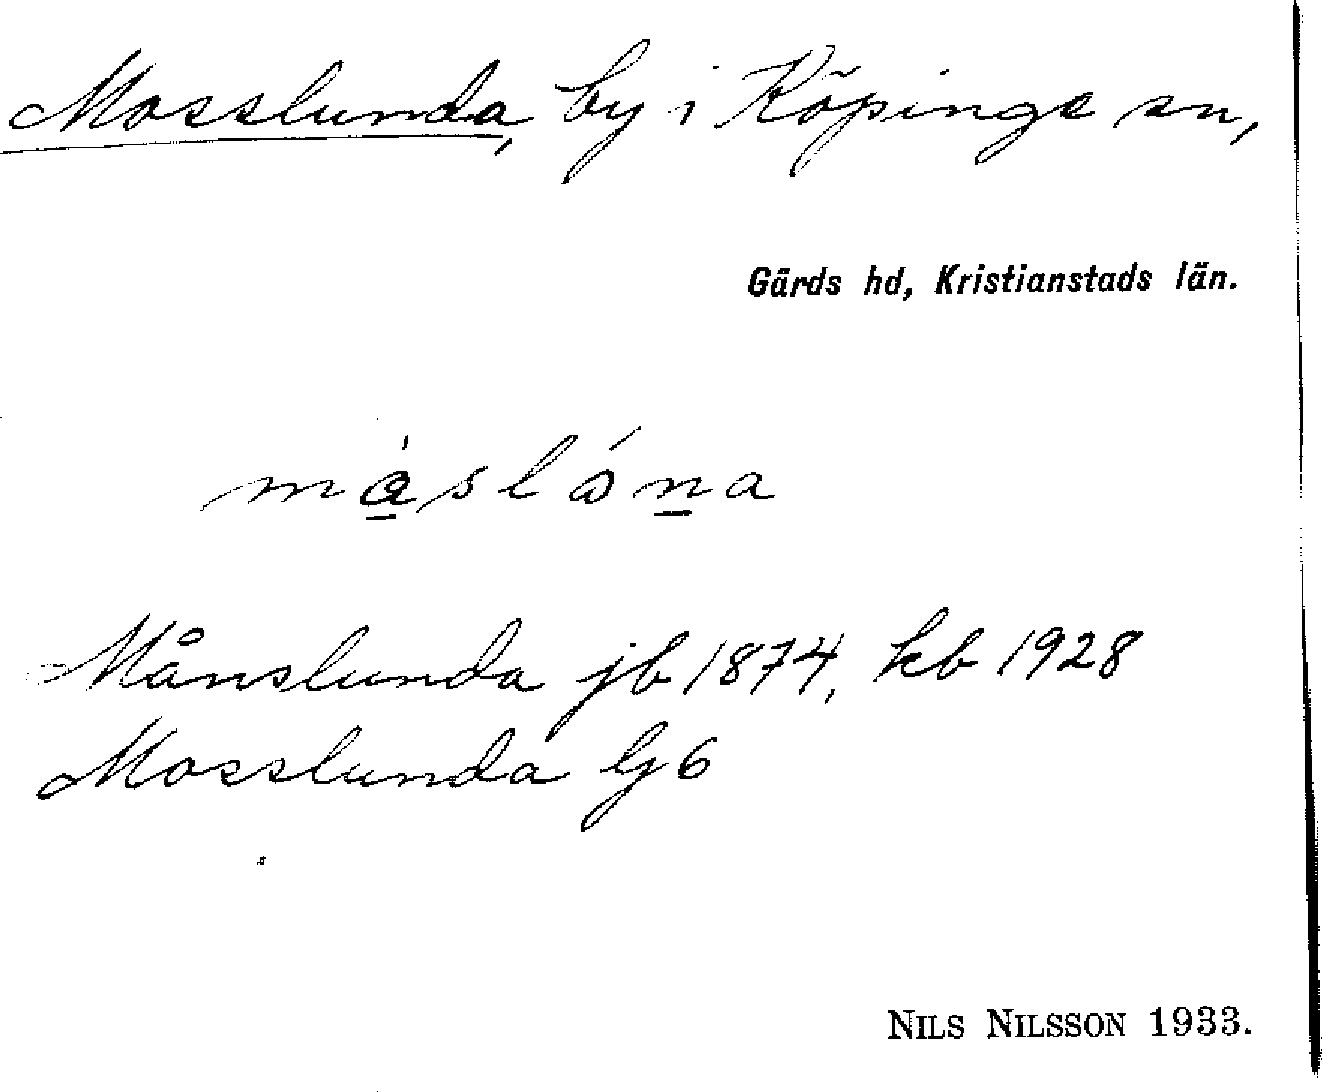 Mosslunda, by i Köpinge sn,
Gärds hd, Kristianstads län.
Månslunda jb 1874, kb 1928
Mosslunda Gj 6
NILS NILSSON 1933.